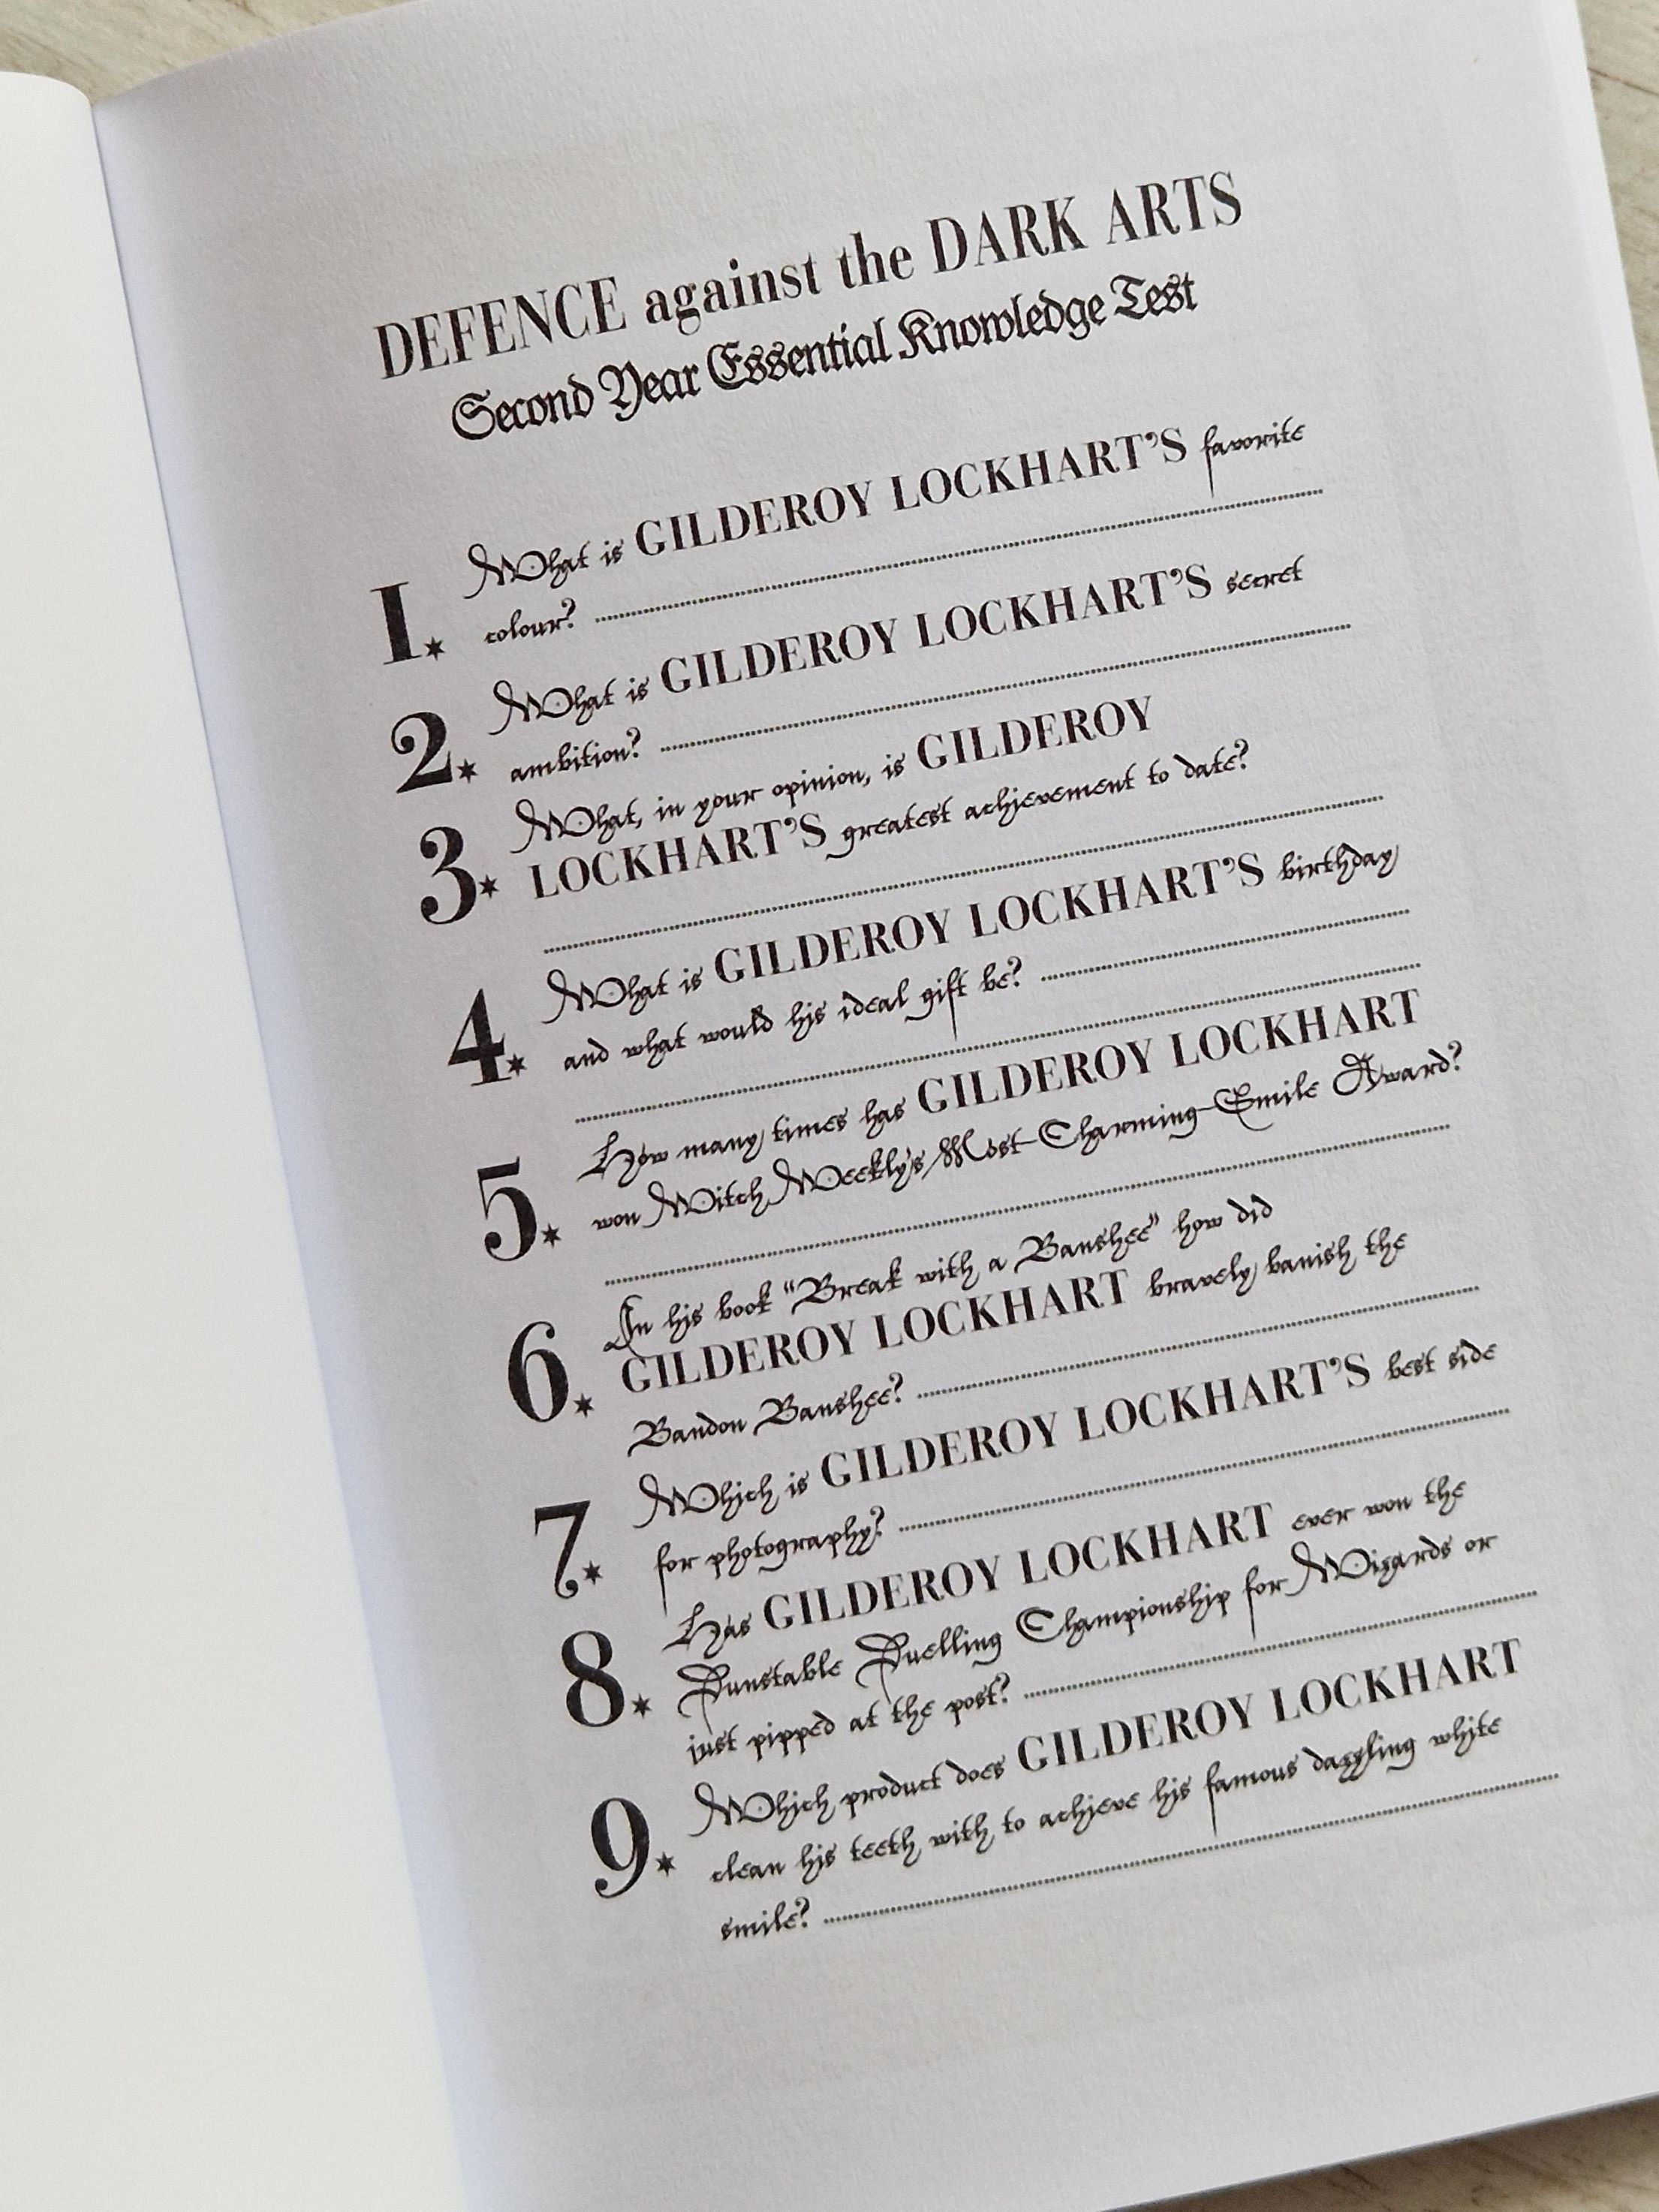 DEFENCE against the DARK ARTS
Second Year Essential Knowledge Test
1. What is GILDEROY LOCKHART'S favorite
colour?
2. What is GILDEROY LOCKHART'S secret
ambition?
3. What, in your opinion, is GILDEROY
LOCKHART'S greatest achievement to date?
4. What is GILDEROY LOCKHART'S birthday
and what would his ideal gift be?
5. How many times has GILDEROY LOCKHART
won Witch Weekly's Most-Charming-Smile Award?
6. In his book "Break with a Banshee" how did
GILDEROY LOCKHART bravely banish the
Bandon Banshee?
7. Which is GILDEROY LOCKHART'S best side
for photography?
8. Has GILDEROY LOCKHART ever won the
Dunstable Duelling Championship for Wizards or
just pipped at the post?
9. Which product does GILDEROY LOCKHART
clean his teeth with to achieve his famous dazzling white
smile?